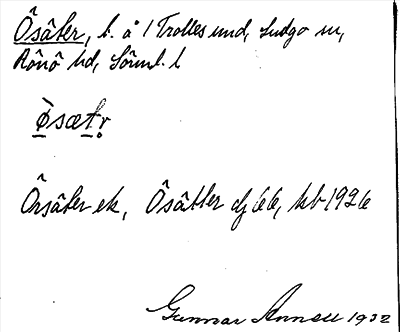 Ösäter, t. å 1 Trollesund, Ludgo sn,
Rönö hd, Sörml. l
ø̀sætr̥
Örsäter ek, Ösätter dj 66, kb 1926
Gunnar Annell 1932